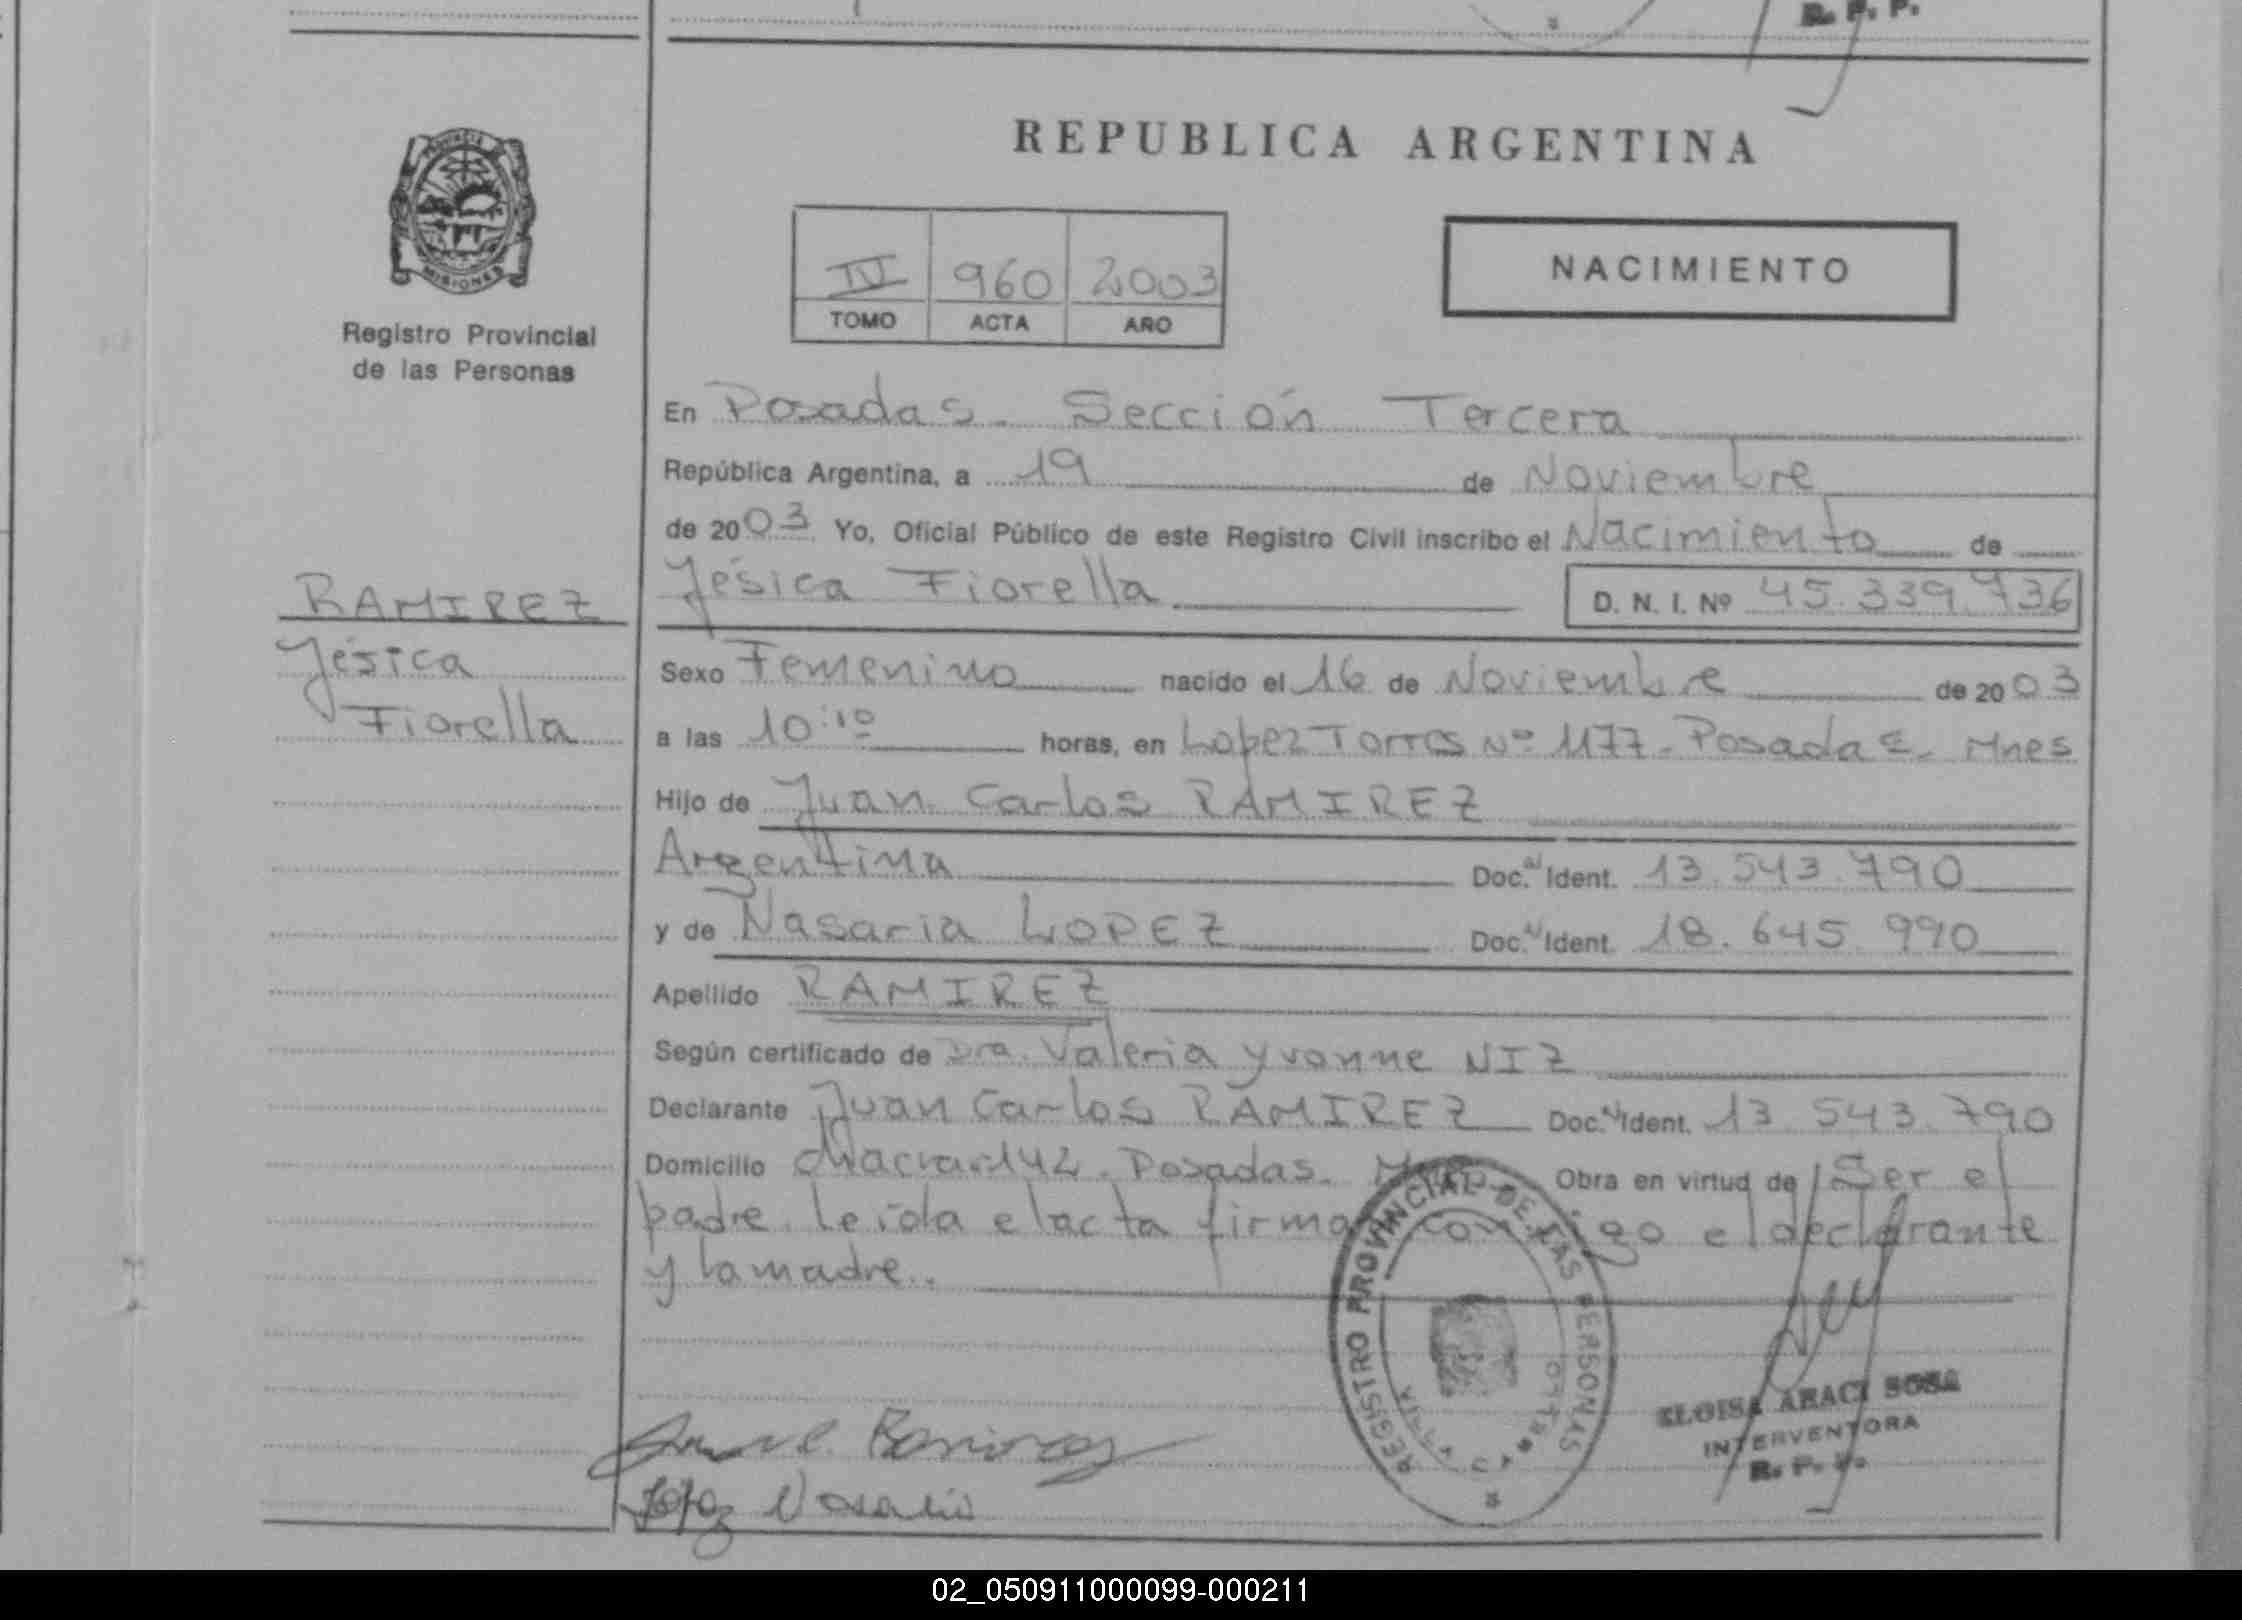 R. P. P.
PROVINCIA
MISIONES
Registro Provincial
de las Personas
REPUBLICA ARGENTINA
IV 960 2003
TOMO ACTA AÑO
NACIMIENTO
En Posadas - Sección Tercera
República Argentina, a 19 de Noviembre
de 2003 Yo, Oficial Público de este Registro Civil inscribo el Nacimiento de
Jésica Fiorella D. N. I. Nº 45.339.736
RAMIREZ
Jésica
Fiorella
Sexo Femenino nacido el 16 de Noviembre de 2003
a las 10:10 horas, en Lopez Torres Nº 1177 - Posadas - Mnes
Hijo de Juan Carlos RAMIREZ
Argentina Doc. Ident. 13.543.790
y de Nasaria LOPEZ Doc. Ident. 18.645.990
Apellido RAMIREZ
Según certificado de Dra. Valeria Yvonne NIZ
Declarante Juan Carlos RAMIREZ Doc. Ident. 13.543.790
Domicilio Chacra 142 - Posadas - Obra en virtud de Ser el
padre. Leída el acta firma conmigo el declarante
y la madre.
REGISTRO PROVINCIAL DE LAS PERSONAS
ELOISA ARACI SOSA
INTERVENTORA
R. P. P.
Lopez Nasaria
02_050911000099-000211